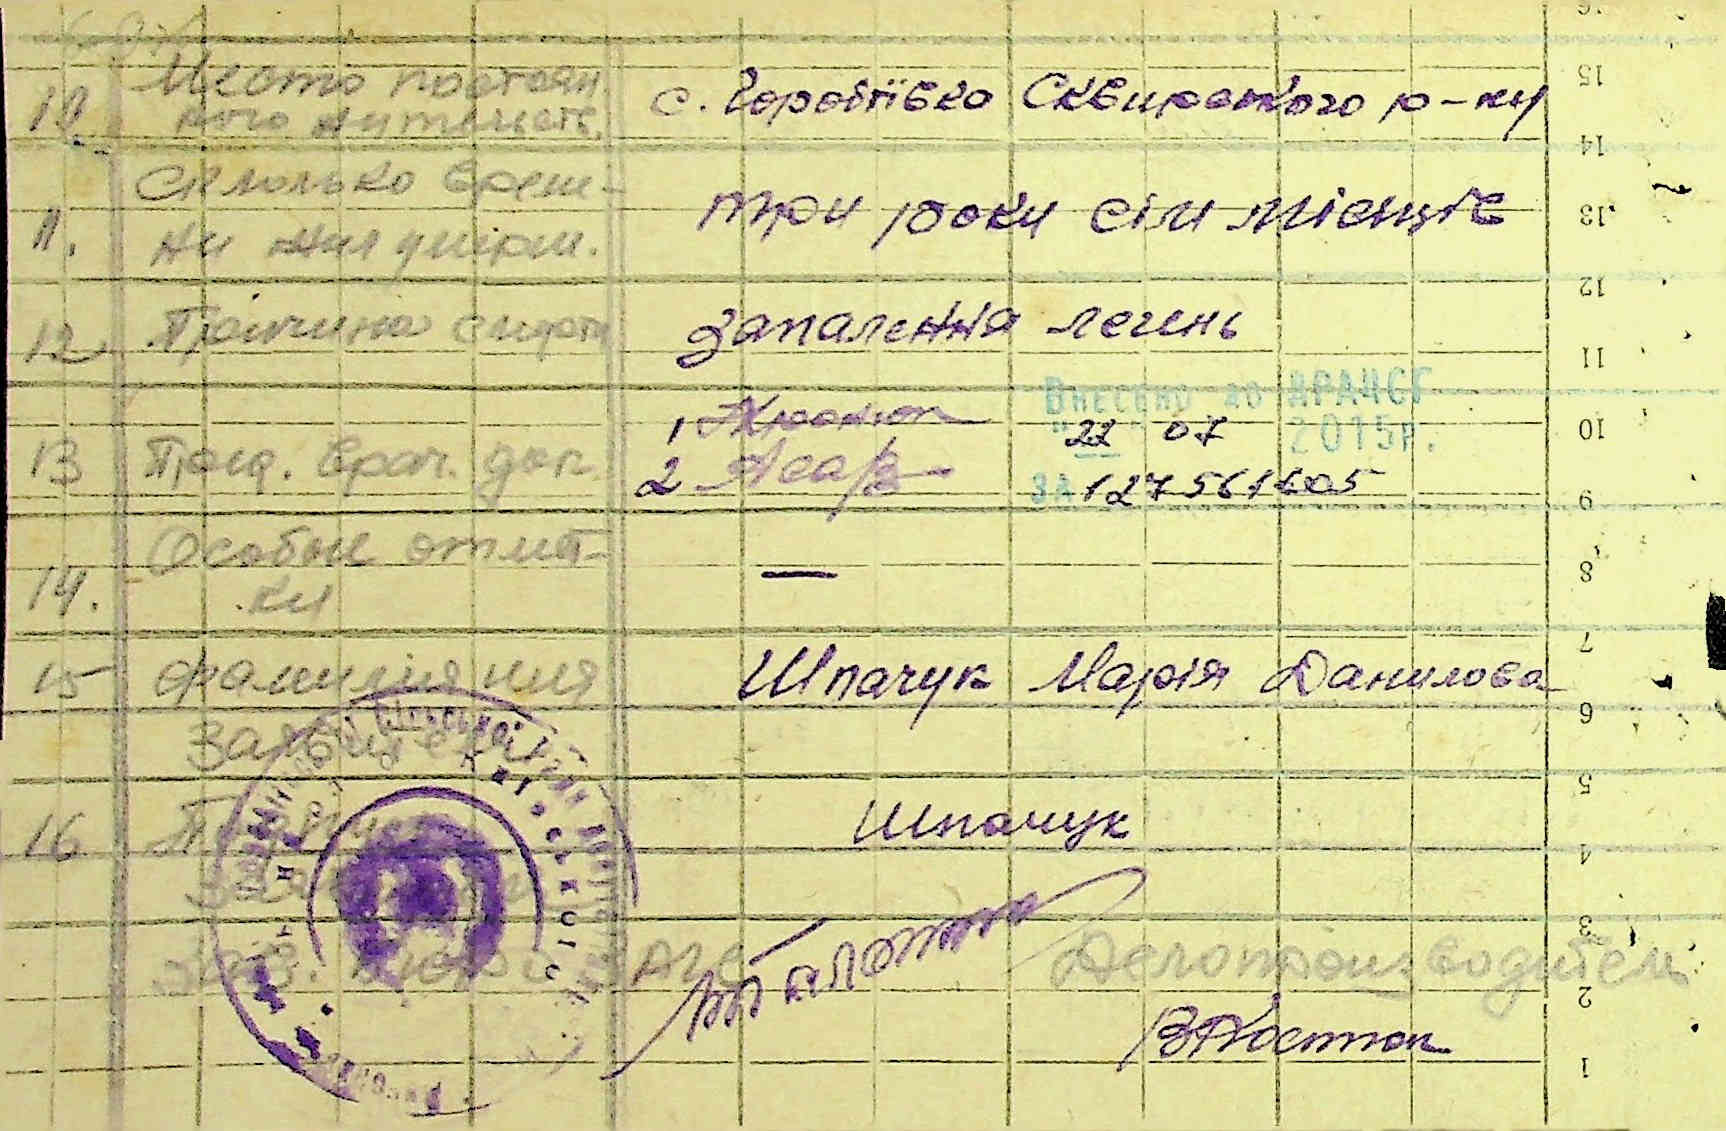 10. Место постоян
ного жительств.
с. Горобіївка Сквирського р-ну
11. Сколько време-
ни жил умерш.
три роки сім місяців
12 Причина смерти
запалення легень
13 Подп. врач. док.
1
2
Внесено до ДРАЦСГ
"22" 07 2015р.
за 127561605
14. Особые отмет-
ки
—
15 Фамилия имя
заявителя
Шпачук Марія Данилова
16 Подпись
заявителя
Шпачук
Зав. бюро ЗАГС
Делопроизводитель
В Костюк
15
14
13
12
11
10
9
8
7
6
5
4
3
2
1